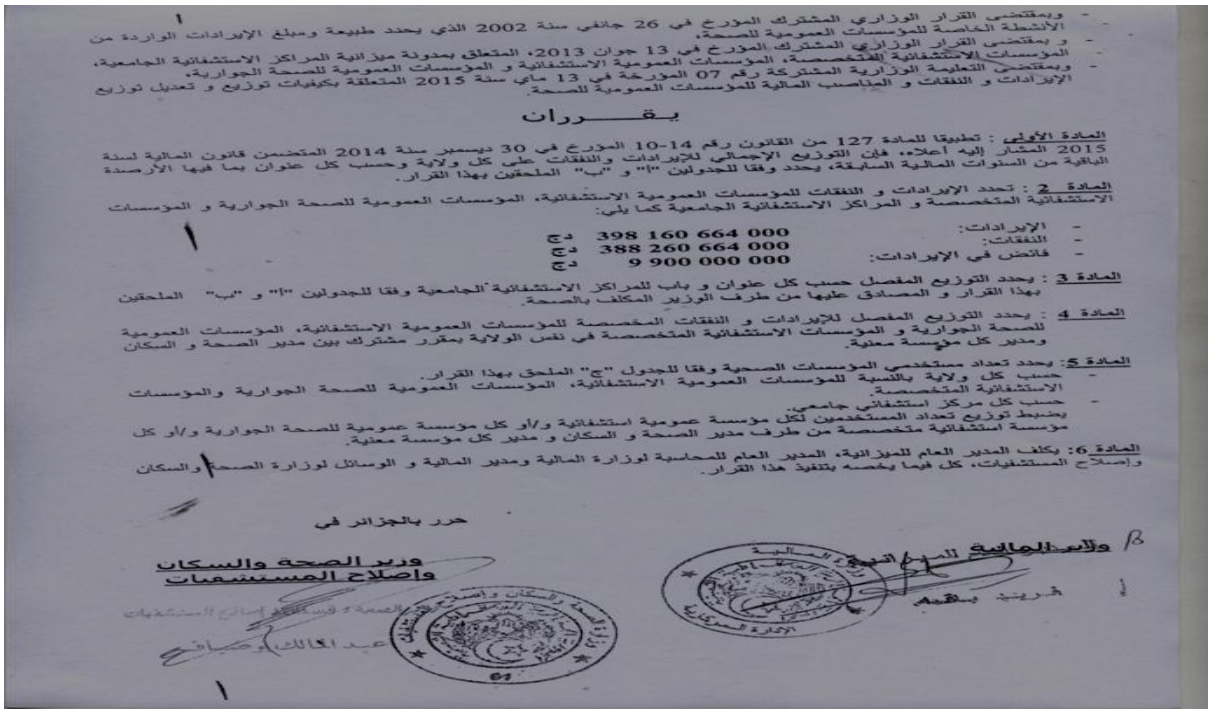 - وبمقتضى القرار الوزاري المشترك المؤرخ في 26 جانفي سنة 2002 الذي يحدد طبيعة ومبلغ الإيرادات الواردة من
الأنشطة الخاصة للمؤسسات العمومية للصحة،
- و بمقتضى القرار الوزاري المشترك المؤرخ في 13 جوان 2013، المتعلق بمدونة ميزانية المراكز الاستشفائية الجامعية،
المؤسسات الاستشفائية المتخصصة، المؤسسات العمومية الاستشفائية و المؤسسات العمومية للصحة الجوارية،
- وبمقتضى التعليمة الوزارية المشتركة رقم 07 المؤرخة في 13 ماي سنة 2015 المتعلقة بكيفيات توزيع و تعديل توزيع
الإيرادات و النفقات و المناصب المالية للمؤسسات العمومية للصحة.
يـقـــــرران
المادة الأولى : تطبيقا للمادة 127 من القانون رقم 14-10 المؤرخ في 30 ديسمبر سنة 2014 المتضمن قانون المالية لسنة
2015 المشار إليه أعلاه، فإن التوزيع الإجمالي للإيرادات والنفقات على كل ولاية وحسب كل عنوان بما فيها الأرصدة
الباقية من السنوات المالية السابقة، يحدد وفقا للجدولين "أ" و "ب" الملحقين بهذا القرار.
المادة 2 : تحدد الإيرادات و النفقات للمؤسسات العمومية الاستشفائية، المؤسسات العمومية للصحة الجوارية و المؤسسات
الاستشفائية المتخصصة و المراكز الاستشفائية الجامعية كما يلي:
- الإيرادات: 398 160 664 000 دج
- النفقات: 388 260 664 000 دج
- فائض في الإيرادات: 9 900 000 000 دج
المادة 3 : يحدد التوزيع المفصل حسب كل عنوان و باب للمراكز الاستشفائية الجامعية وفقا للجدولين "أ" و "ب" الملحقين
بهذا القرار و المصادق عليها من طرف الوزير المكلف بالصحة.
المادة 4 : يحدد التوزيع المفصل للإيرادات و النفقات المخصصة للمؤسسات العمومية الاستشفائية، المؤسسات العمومية
للصحة الجوارية و المؤسسات الاستشفائية المتخصصة في نفس الولاية بمقرر مشترك بين مدير الصحة و السكان
ومدير كل مؤسسة معنية.
المادة 5: يحدد تعداد مستخدمي المؤسسات الصحية وفقا للجدول "ج" الملحق بهذا القرار.
- حسب كل ولاية بالنسبة للمؤسسات العمومية الاستشفائية، المؤسسات العمومية للصحة الجوارية والمؤسسات
الاستشفائية المتخصصة.
- حسب كل مركز استشفائي جامعي.
يضبط توزيع تعداد المستخدمين لكل مؤسسة عمومية استشفائية و/أو كل مؤسسة عمومية للصحة الجوارية و/أو كل
مؤسسة استشفائية متخصصة من طرف مدير الصحة و السكان و مدير كل مؤسسة معنية.
المادة 6: يكلف المدير العام للميزانية، المدير العام للمحاسبة لوزارة المالية ومدير المالية و الوسائل لوزارة الصحة والسكان
وإصلاح المستشفيات، كل فيما يخصه بتنفيذ هذا القرار.
حرر بالجزائر في
وزير المالية
وزير الصحة والسكان
وإصلاح المستشفيات